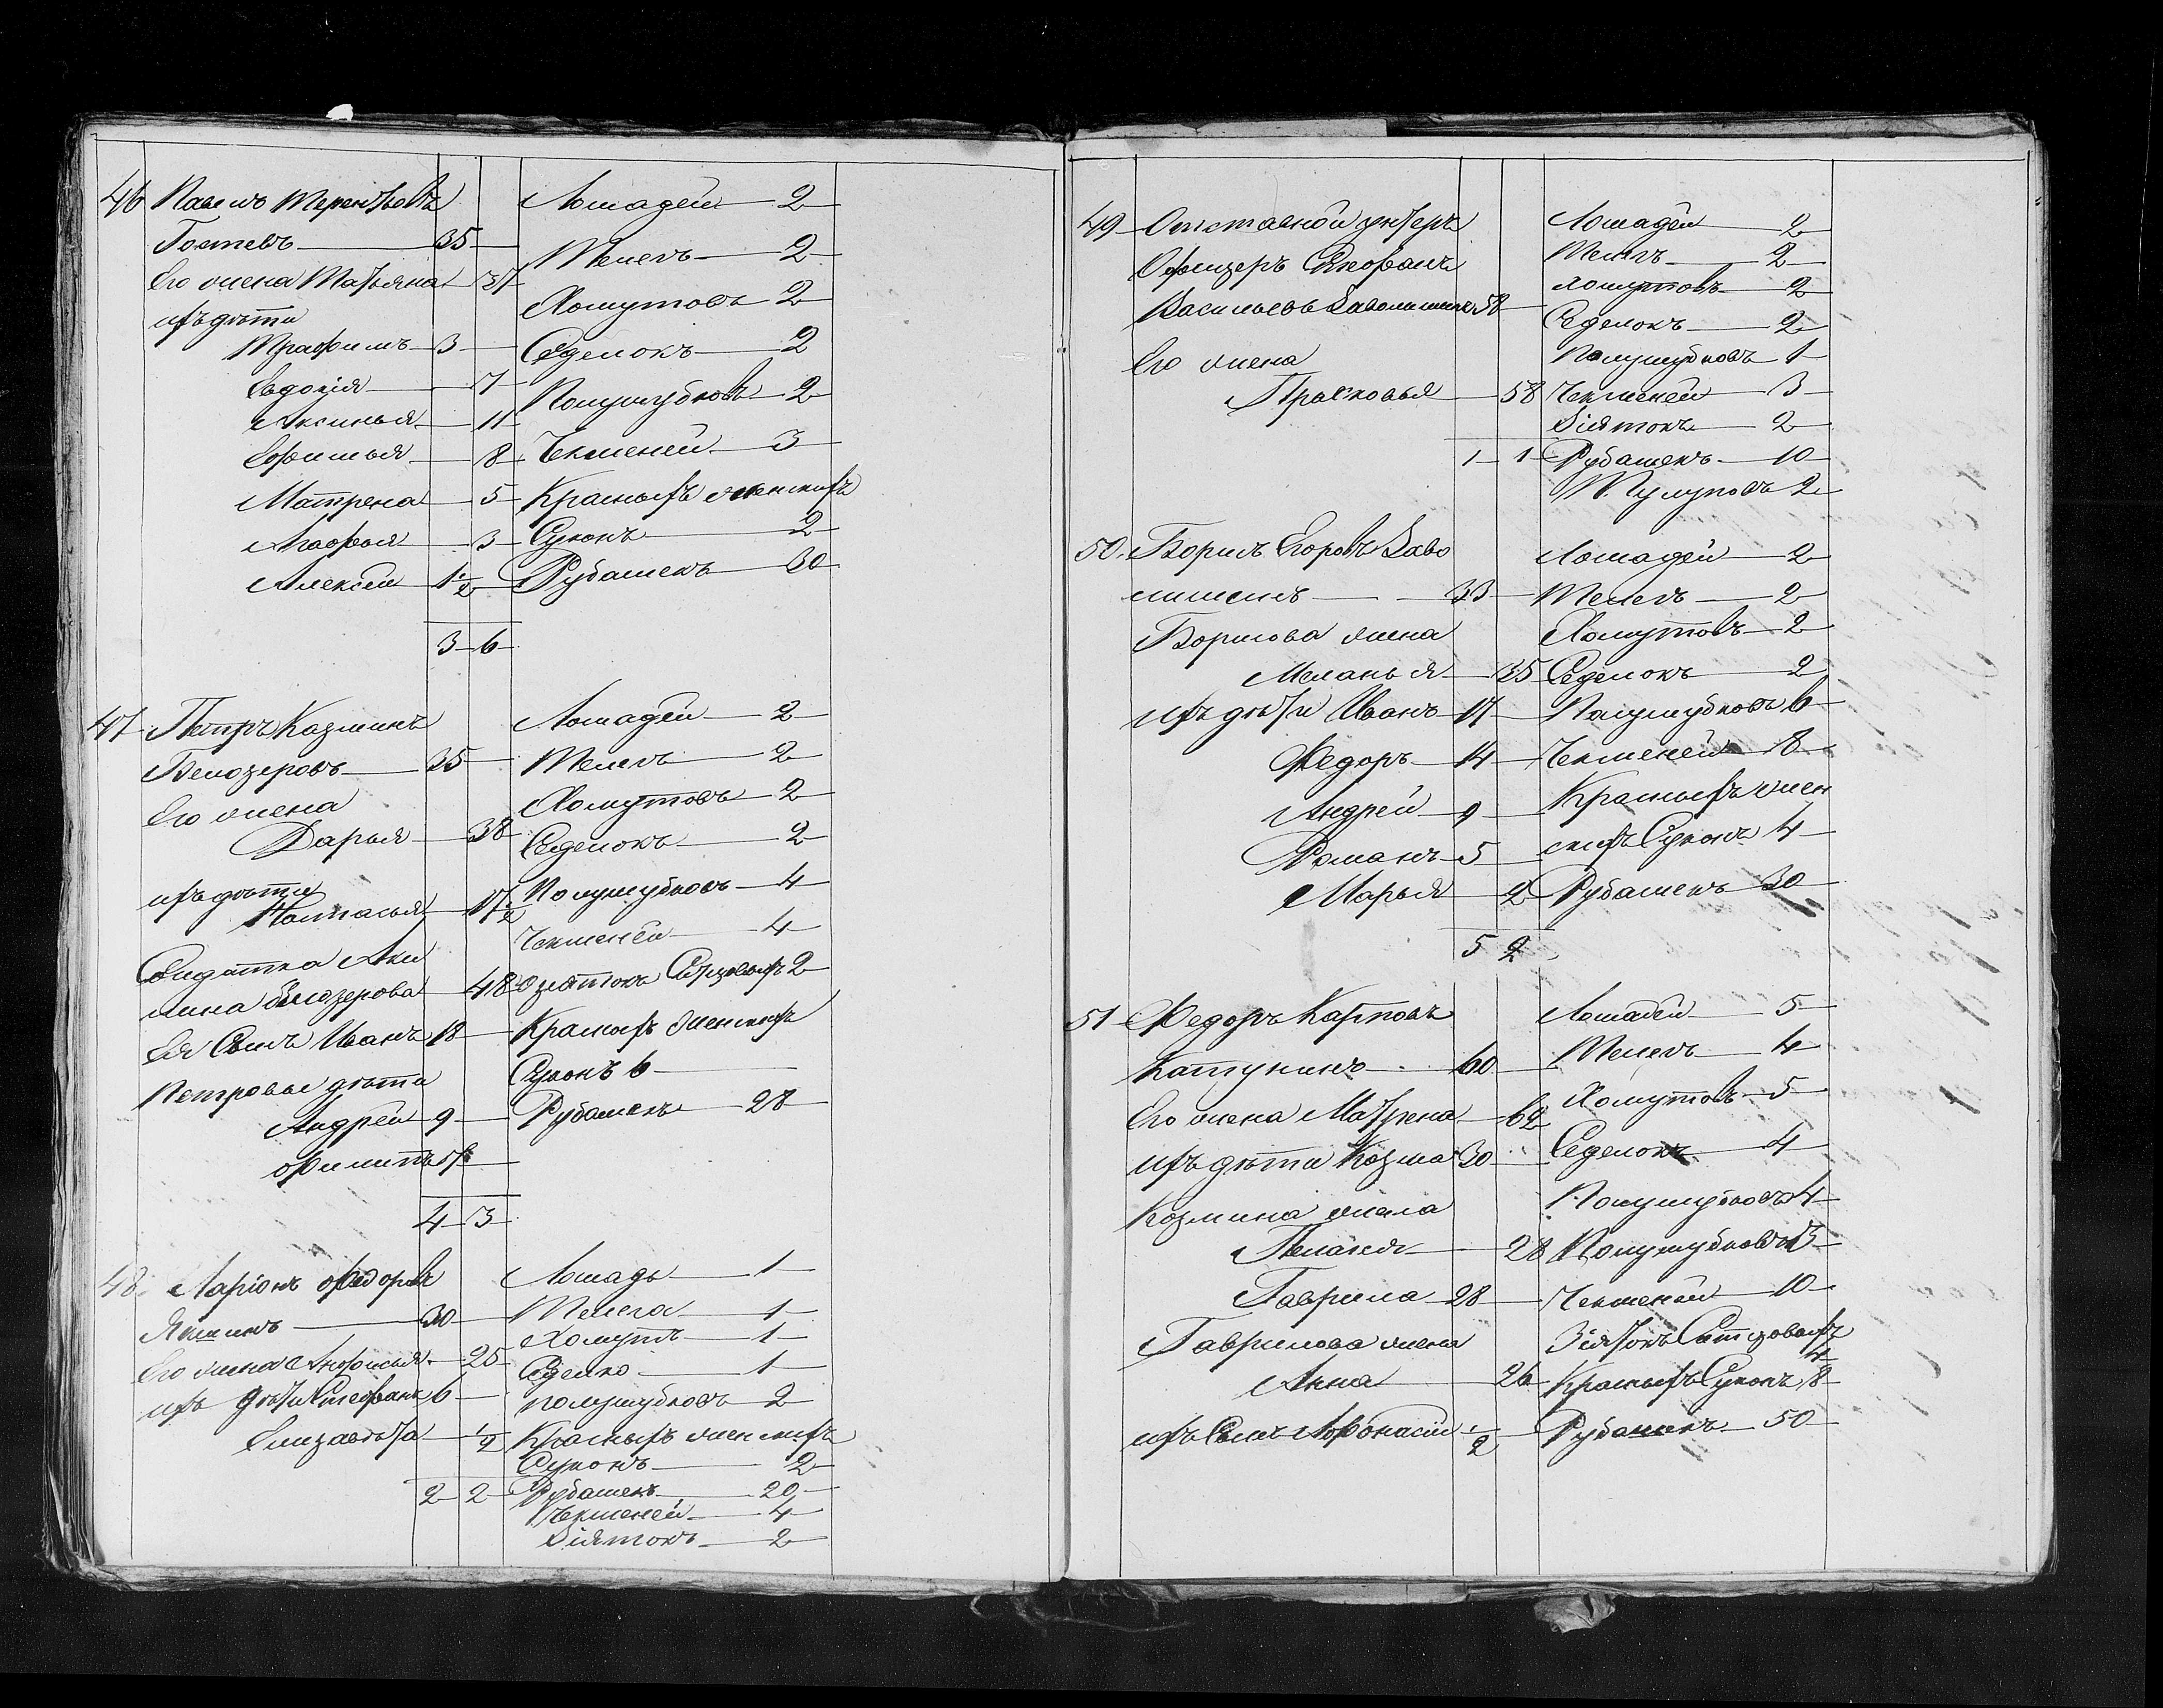 46 Павелъ Терентьевъ
Гостевъ 35
Его жена Татьяна 37
ихъ дѣти
Трафимъ 3
Евдокія 7
Аксинья 11
Евфимья 8
Матрена 5
Агафья 3
Алексей 1 1/2
3 6
Лошадей 2
Телегъ 2
Хомутовъ 2
Седелокъ 2
Полушубковъ 2
Чекменей 3
Красныхъ женскихъ
Суконъ 2
Рубашекъ 30
47 Петръ Казминъ
Белозеровъ 35
Его жена
Дарья 38
ихъ дѣти
Настасья 17 1/2
Солдатка Аку
лина Белозерова 48
Ея Сынъ Иванъ 18
Петровые дѣти
Андрей 9
Филипъ
4 3
Лошадей 2
Телегъ 2
Хомутовъ 2
Седелокъ 2
Полушубковъ 4
Чекменей 4
Ситцовыхъ 2
Красныхъ Женскихъ
Суконъ 6
Рубашекъ 28
48 Ларіонъ Федоровъ
Яшинъ 30
Его жена Анфисья 25
ихъ дѣти Стефанъ 6
Елизавета 1/2
2 2
Лошадь 1
Телега 1
Хомутъ 1
Седелко 1
полушубковъ 2
Красныхъ женскихъ
Суконъ 2
Рубашекъ 20
Чекменей 4
Зіятокъ 2
49 Отставной унтеръ
Офицеръ Стефанъ
Васильевъ Заволишинъ 58
Его жена
Прасковья 58
1 1
Лошадей 2
Телегъ 2
Хомутовъ 2
Седелокъ 2
Полушубковъ 1
Чекменей 3
Зіятокъ 2
Рубашекъ 10
Тулуповъ 2
50 Борисъ Егоровъ Заво
лишинъ 33
Борисова жена
Меланья 35
ихъ дѣти Иванъ 17
Федоръ 14
Андрей 9
Романъ 5
Марья 2
5 2
Лошадей 2
Телегъ 2
Хомутовъ 2
Седелокъ 2
Полушубковъ 6
Чекменей 8
Красныхъ жен
скихъ Суконъ 4
Рубашекъ 30
51 Федоръ Карповъ
Катунинъ 60
Его жена Матрена 62
ихъ дѣти Козма 30
Козмина жена
Пелагея 28
Гаврила 28
Гаврилова жена
Анна 26
ихъ Сынъ Афонасій 1/2
Лошадей 5
Телегъ 4
Хомутовъ 5
Седелокъ 4
Полушубковъ 4
Полушубковъ 5
Чекменей 10
Зіятокъ Ситцовыхъ
4
Красныхъ Сукокъ 8
Рубашекъ 50